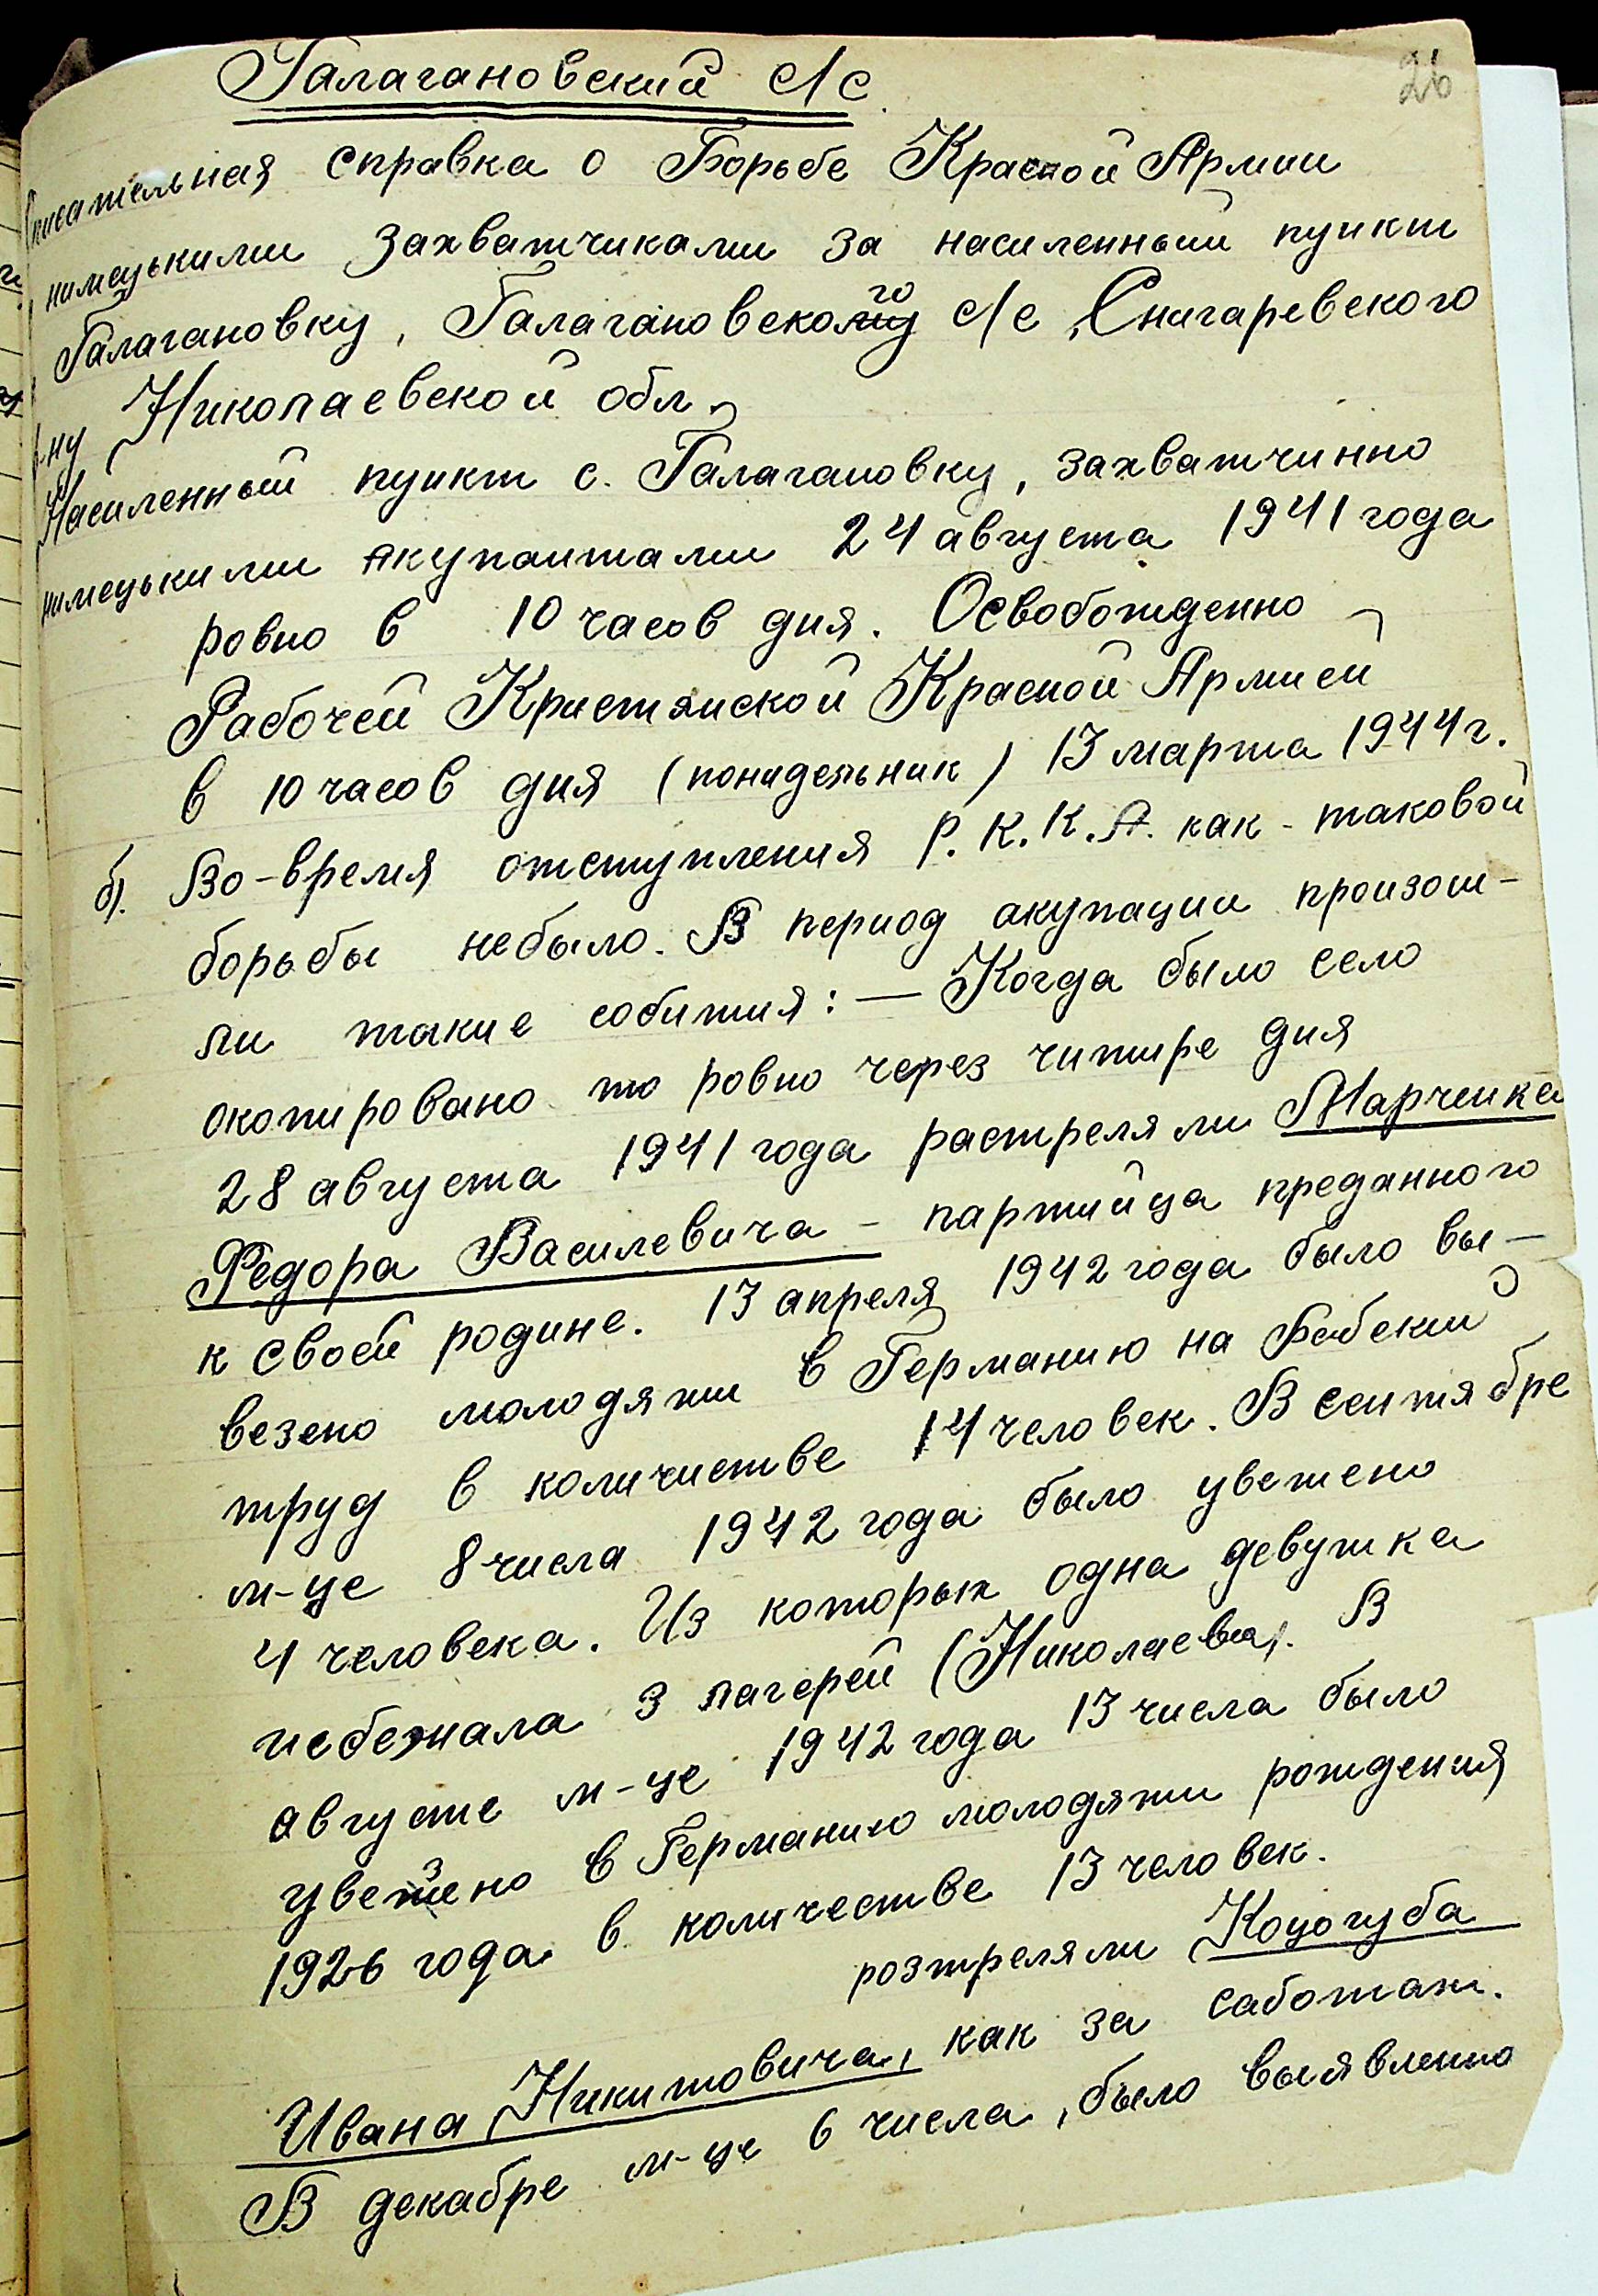 Галагановский с/с
26
писательная справка о Борьбе Красной Армии
нимецькими захватчиками за насиленный пункт
Галагановку, Галагановского с/с, Снигаревского
ну Николаевской обл.
Насиленный пункт с. Галагановку, захватчинно
нимецькими акупантами 24 августа 1941 года
ровно в 10 часов дня. Освобожденно
Рабочей Кристянской Красной Армией
в 10 часов дня (понидельник) 13 марта 1944 г.
б). Во-время отступления Р.К.К.А. как-таковой
борьбы небыло. В период акупации произош-
ли такие собития: — Когда было село
окопировано то ровно через читире дня
28 августа 1941 года растреляли Марченка
Федора Василевича – партийца преданного
к своей родине. 13 апреля 1942 года было вы-
везено молодяжи в Германию на Рабский
труд в количистве 14 человек. В сентябре
м-це 8 числа 1942 года было увежено
4 человека. Из которых одна девушка
исбежала з лагерей (Николаева). В
августе м-це 1942 года 13 числа было
увезено в Германию молодяжи рождения
1926 года в количестве 13 человек.
розтреляли Коцогуба
Ивана Никитовича, как за саботаж.
В декабре м-це 6 числа, было выявленно